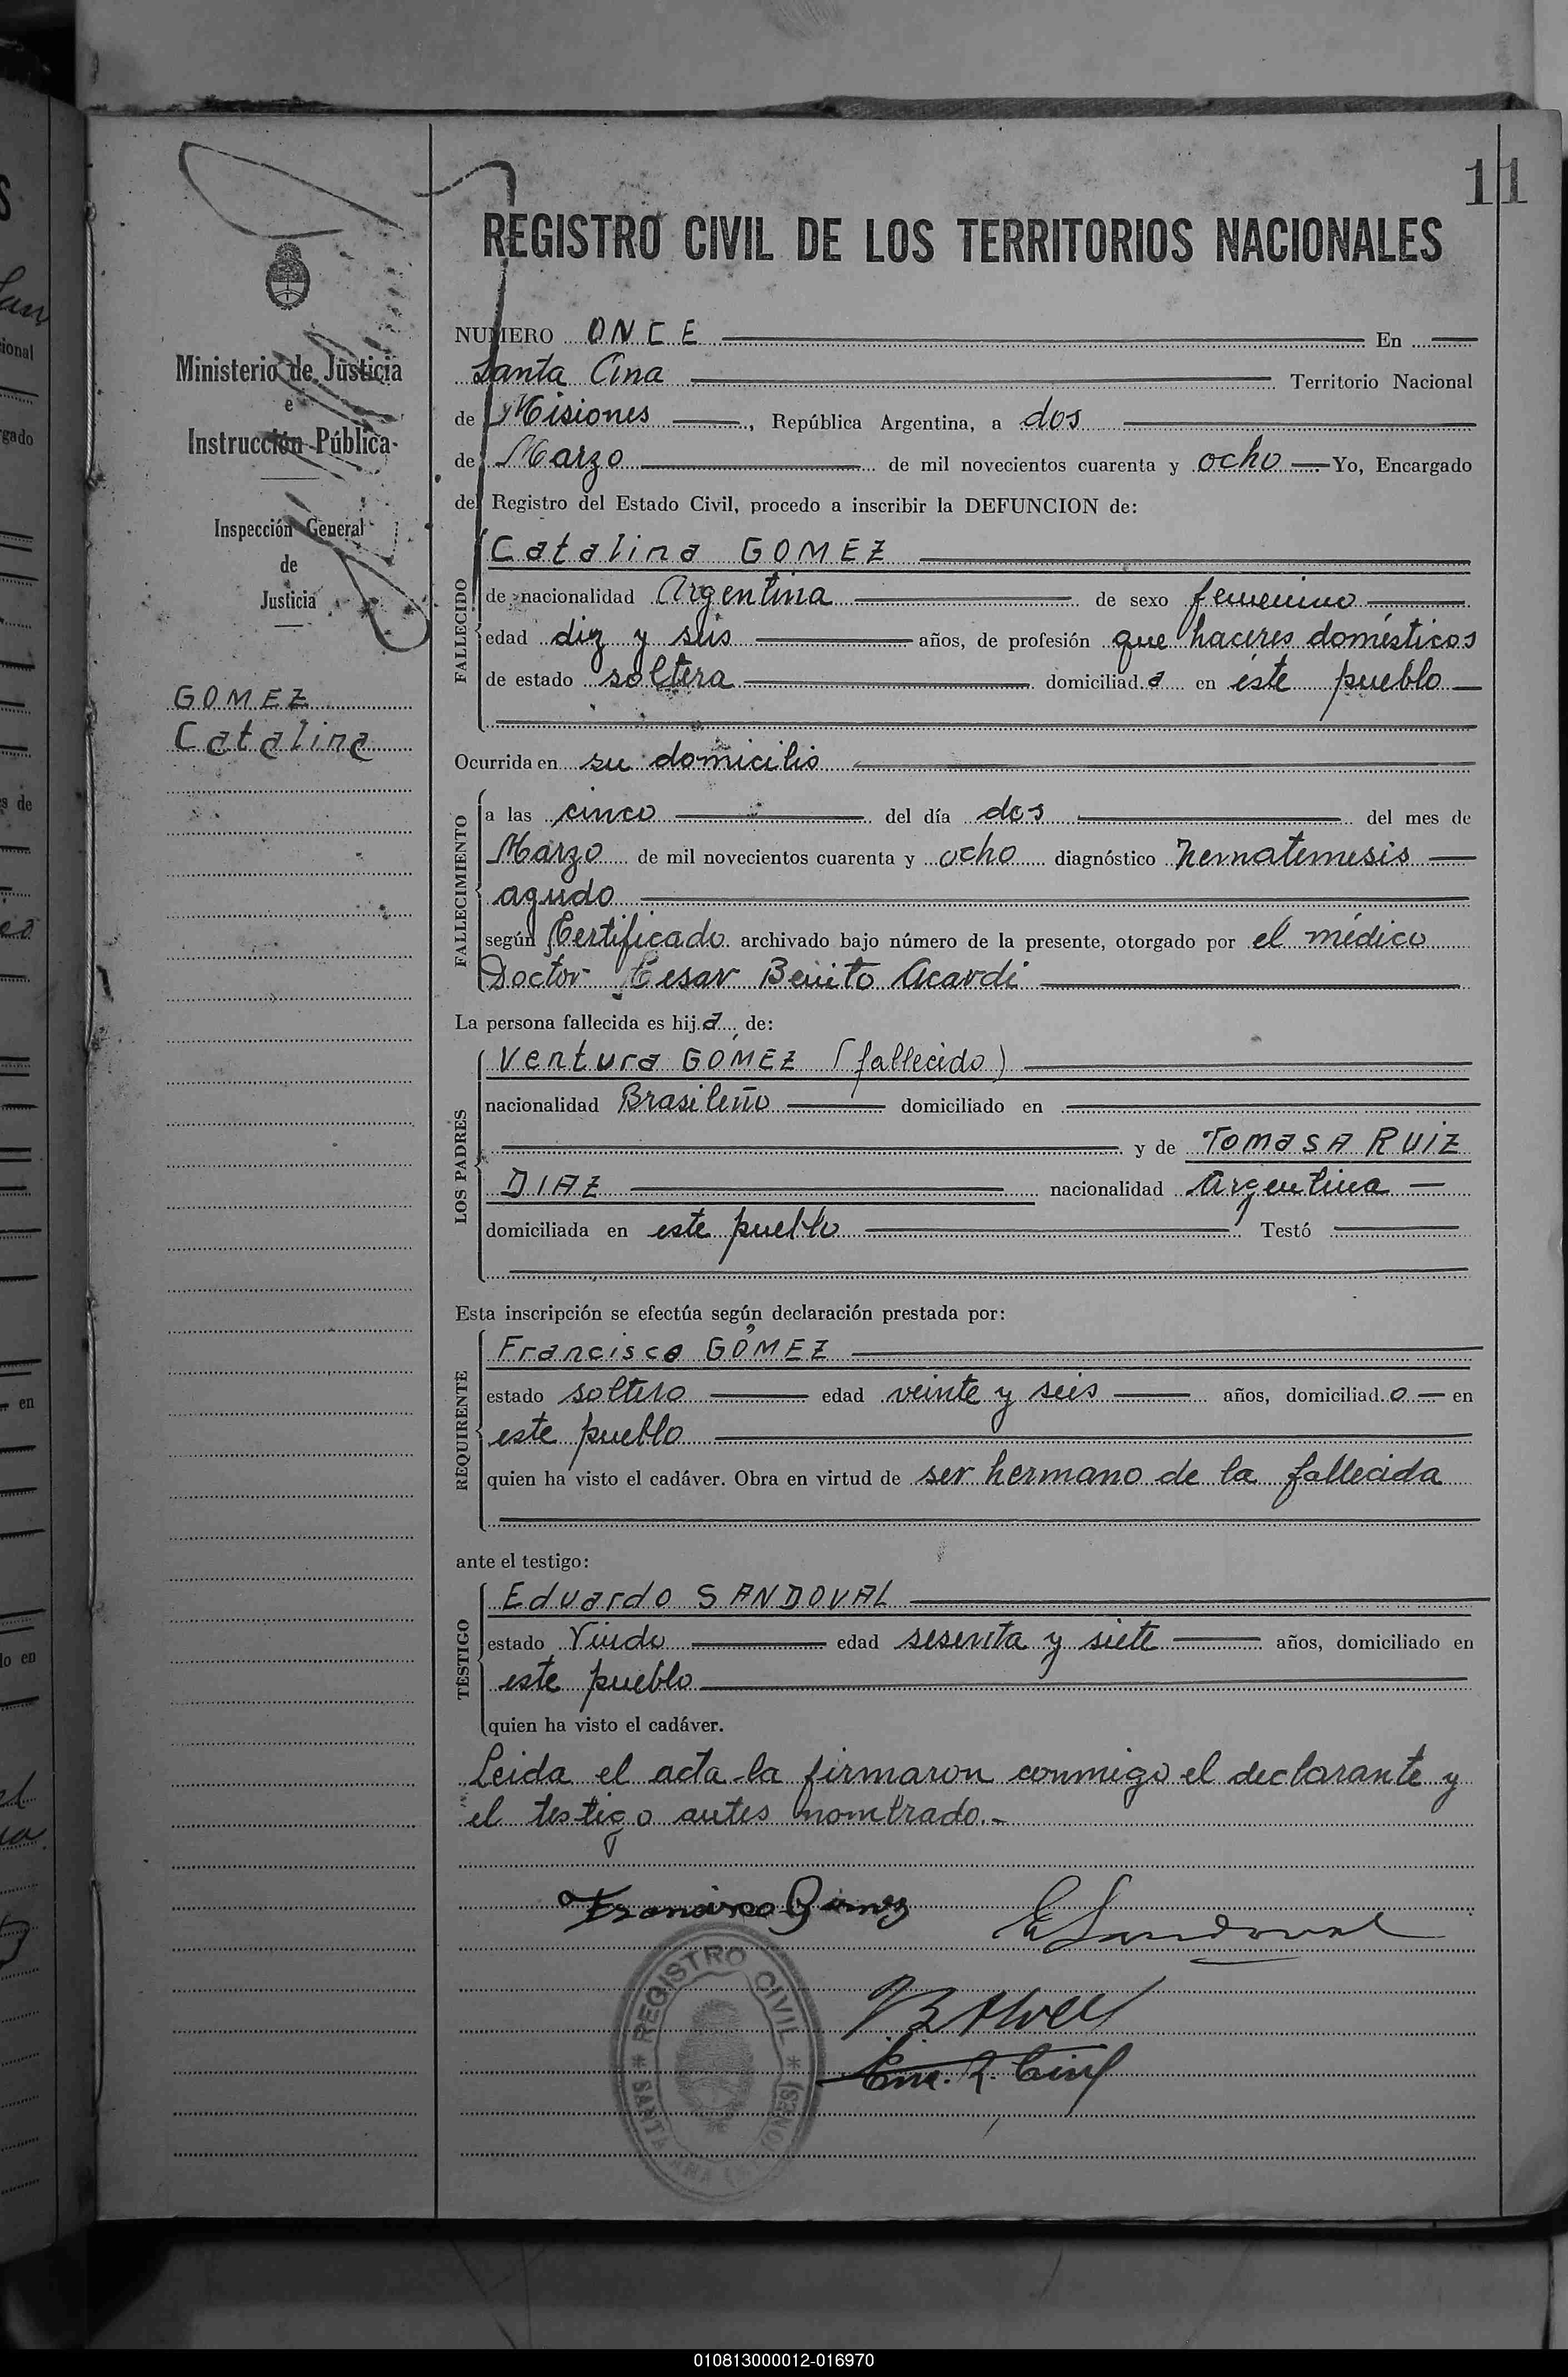 11
REGISTRO CIVIL DE LOS TERRITORIOS NACIONALES
Ministerio de Justicia
e
Instrucción Pública
Inspección General
de
Justicia
GOMEZ
Catalina
NUMERO ONCE En
Santa Ana Territorio Nacional
de Misiones, República Argentina, a dos
de Marzo de mil novecientos cuarenta y ocho Yo, Encargado
del Registro del Estado Civil, procedo a inscribir la DEFUNCION de:
FALLECIDO
Catalina GOMEZ
de nacionalidad Argentina de sexo femenino
edad diez y seis años, de profesión que haceres domésticos
de estado soltera domiciliad a en éste pueblo
Ocurrida en su domicilio
FALLECIMIENTO
a las cinco del día dos del mes de
Marzo de mil novecientos cuarenta y ocho diagnóstico hematemesis
agudo
según Certificado archivado bajo número de la presente, otorgado por el médico
Doctor Cesar Benito Acardi
La persona fallecida es hij a de:
LOS PADRES
Ventura GÓMEZ (fallecido)
nacionalidad Brasileño domiciliado en
y de TOMASA RUIZ
DIAZ nacionalidad Argentina
domiciliada en este pueblo Testó
Esta inscripción se efectúa según declaración prestada por:
REQUIRENTE
Francisco GÓMEZ
estado soltero edad veinte y seis años, domiciliad o en
este pueblo
quien ha visto el cadáver. Obra en virtud de ser hermano de la fallecida
ante el testigo:
TESTIGO
Eduardo SANDOVAL
estado Viudo edad sesenta y siete años, domiciliado en
este pueblo
quien ha visto el cadáver.
Leida el acta la firmaron conmigo el declarante y
el testigo antes nombrado.-
Francisco Gomez
E Sandoval
Enc. R. Civil
REGISTRO CIVIL
SANTA ANA (MISIONES)
010813000012-016970